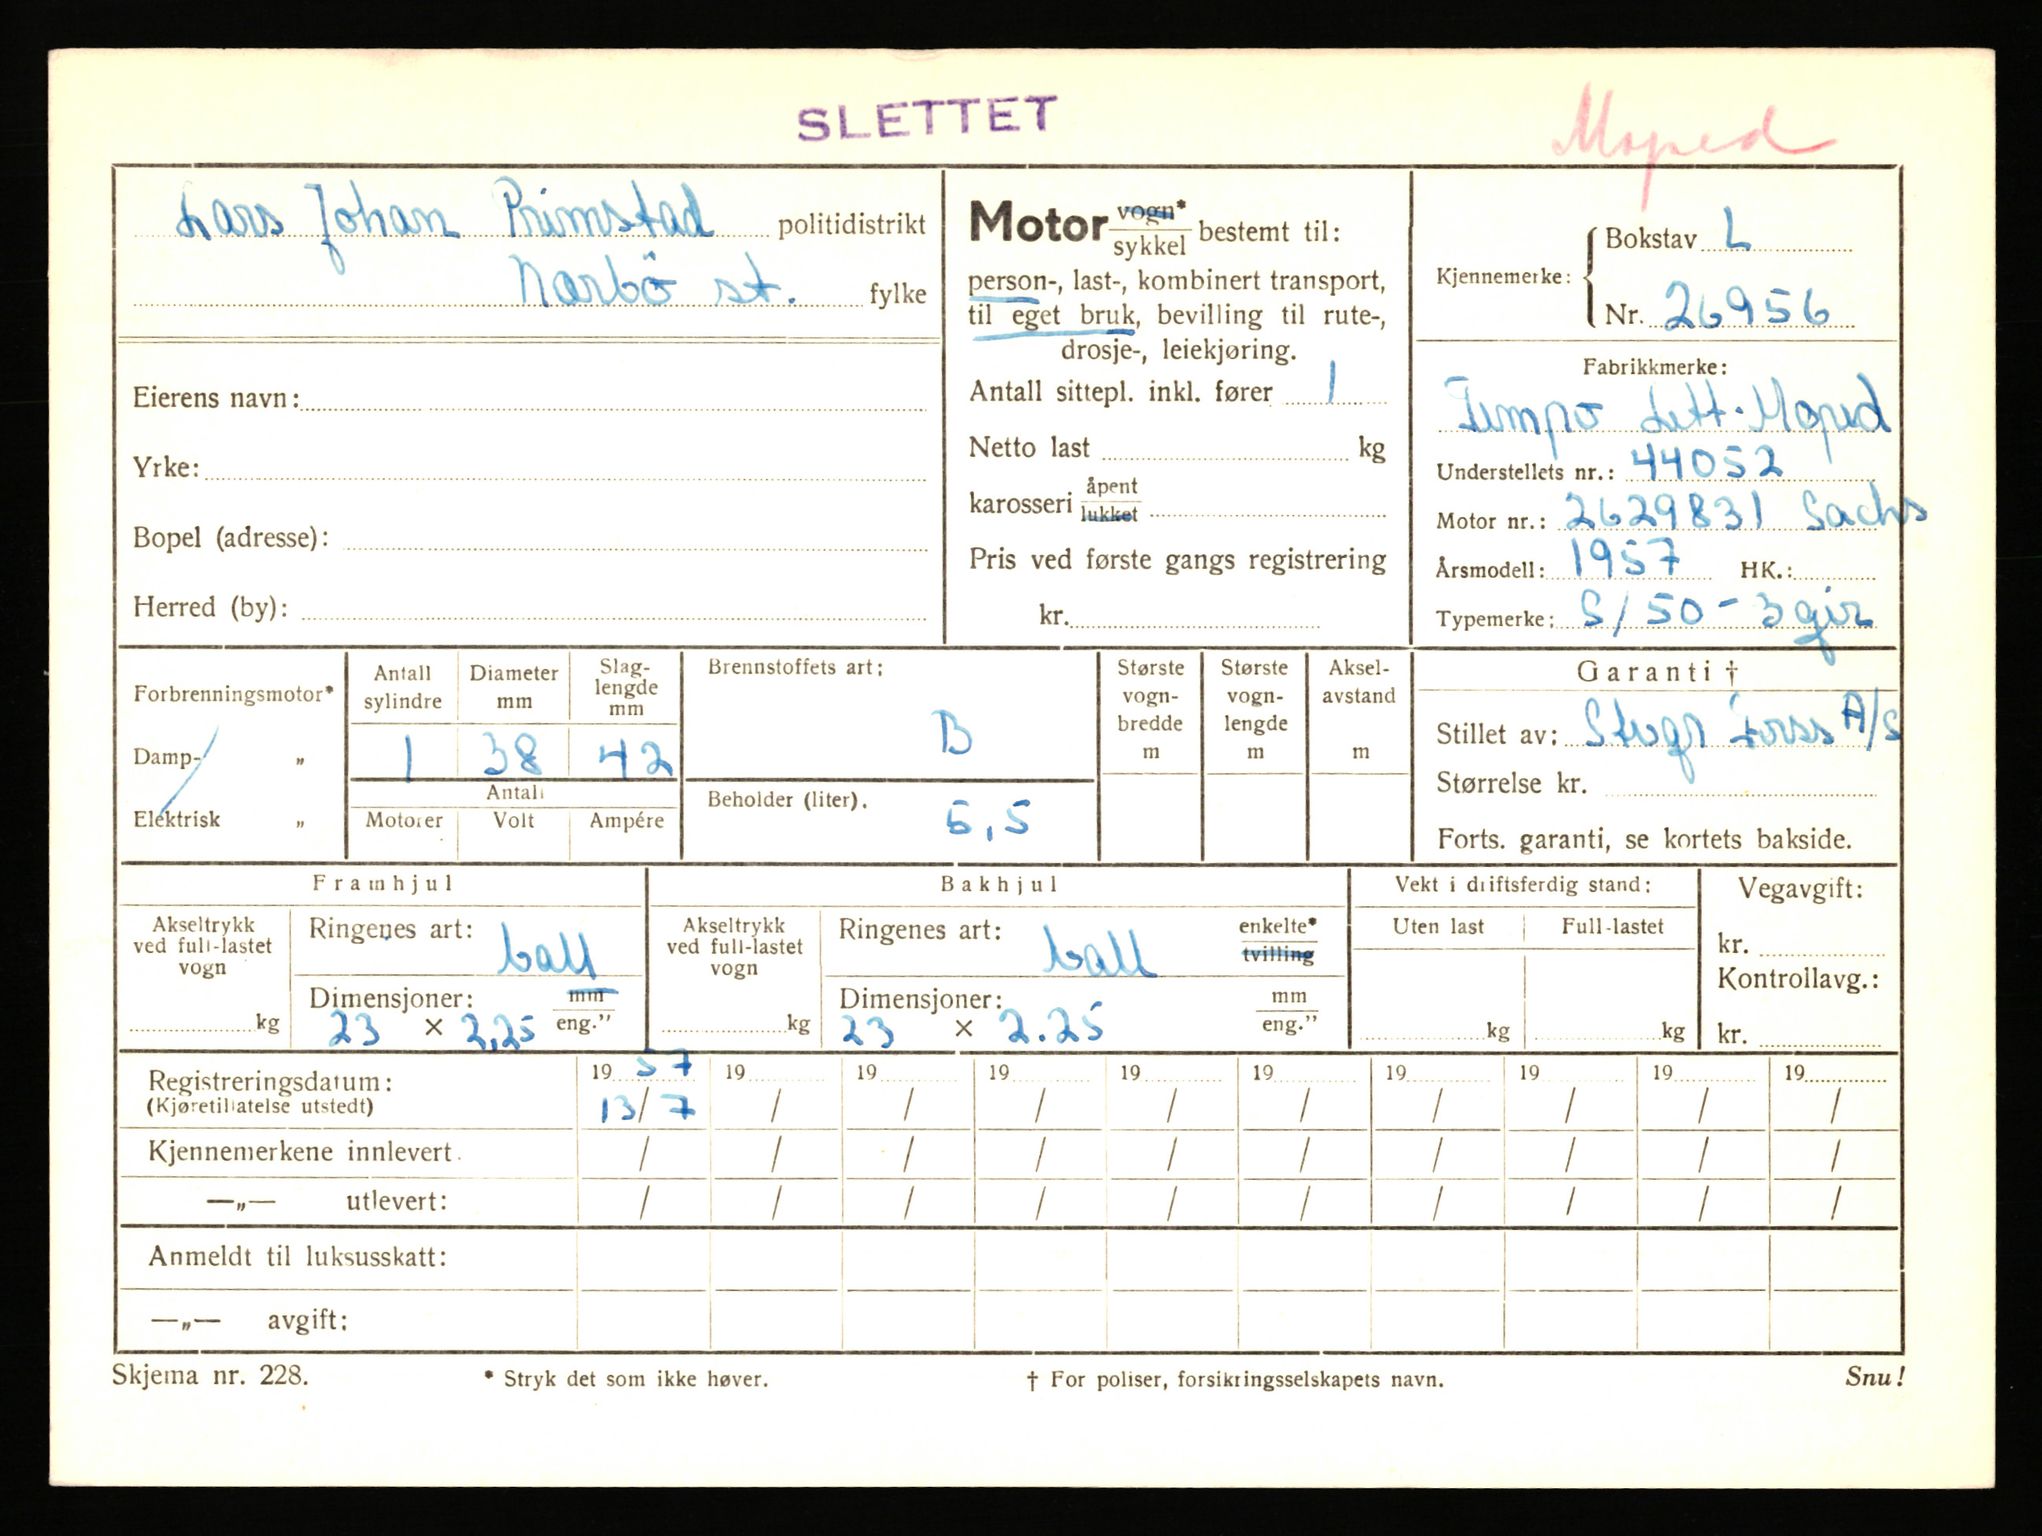 SLETTET
Moped
Lars Johan Primstad politidistrikt
Narbö st. fylke
Eierens navn:
Yrke:
Bopel (adresse):
Herred (by):
Motor vogn* sykkel bestemt til:
person-, last-, kombinert transport,
til eget bruk, bevilling til rute-,
drosje-, leiekjøring.
Antall sittepl. inkl. fører 1
Netto last kg
karosseri åpent lukket
Pris ved første gangs registrering
kr.
Kjennemerke: Bokstav L
Nr. 26956
Fabrikkmerke:
Tempo Lett-Moped
Understellets nr.: 44052
Motor nr.: 2629831 Sachs
Årsmodell: 1957 HK.:
Typemerke: S/50 - 3 gir
Forbrenningsmotor*
Damp- „
Elektrisk „
Antall sylindre
Diameter mm
Slag-lengde mm
1 38 42
Antall
Motorer Volt Ampére
Brennstoffets art:
B
Beholder (liter).
6,5
Største vogn-bredde m
Største vogn-lengde m
Aksel-avstand m
Garanti †
Stillet av: A/S
Størrelse kr.
Forts. garanti, se kortets bakside.
Framhjul
Akseltrykk ved full-lastet vogn
kg
Ringenes art: ball
Dimensjoner: mm
23 × 2,25 eng.”
Bakhjul
Akseltrykk ved full-lastet vogn
kg
Ringenes art: ball enkelte* tvilling
Dimensjoner: mm
23 × 2.25 eng.”
Vekt i driftsferdig stand:
Uten last Full-lastet
kg kg
Vegavgift:
kr.
Kontrollavg.:
kr.
Registreringsdatum: 19 57 19 19 19 19 19 19 19 19 19
(Kjøretillatelse utstedt) 13/7 / / / / / / / / /
Kjennemerkene innlevert. / / / / / / / / / /
—„— utlevert: / / / / / / / / / /
Anmeldt til luksusskatt:
—„— avgift:
Skjema nr. 228. * Stryk det som ikke høver. † For poliser, forsikringsselskapets navn. Snu!